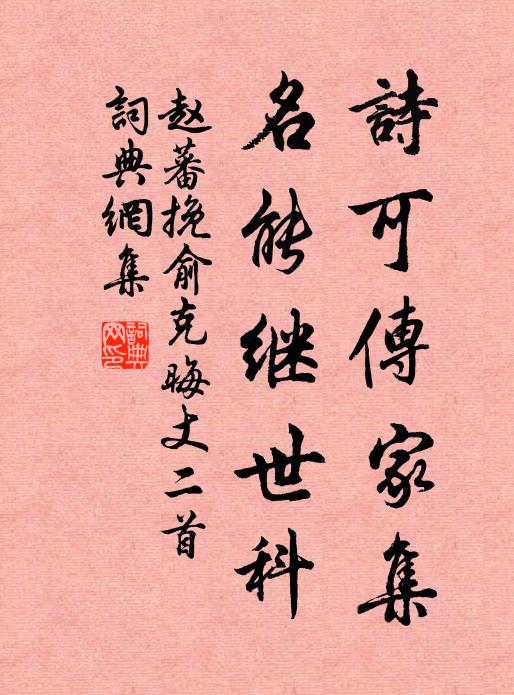 詩可傳家集
名能继世科
赵蕃挽俞克晦丈二首
詞典網集
詞典
网印